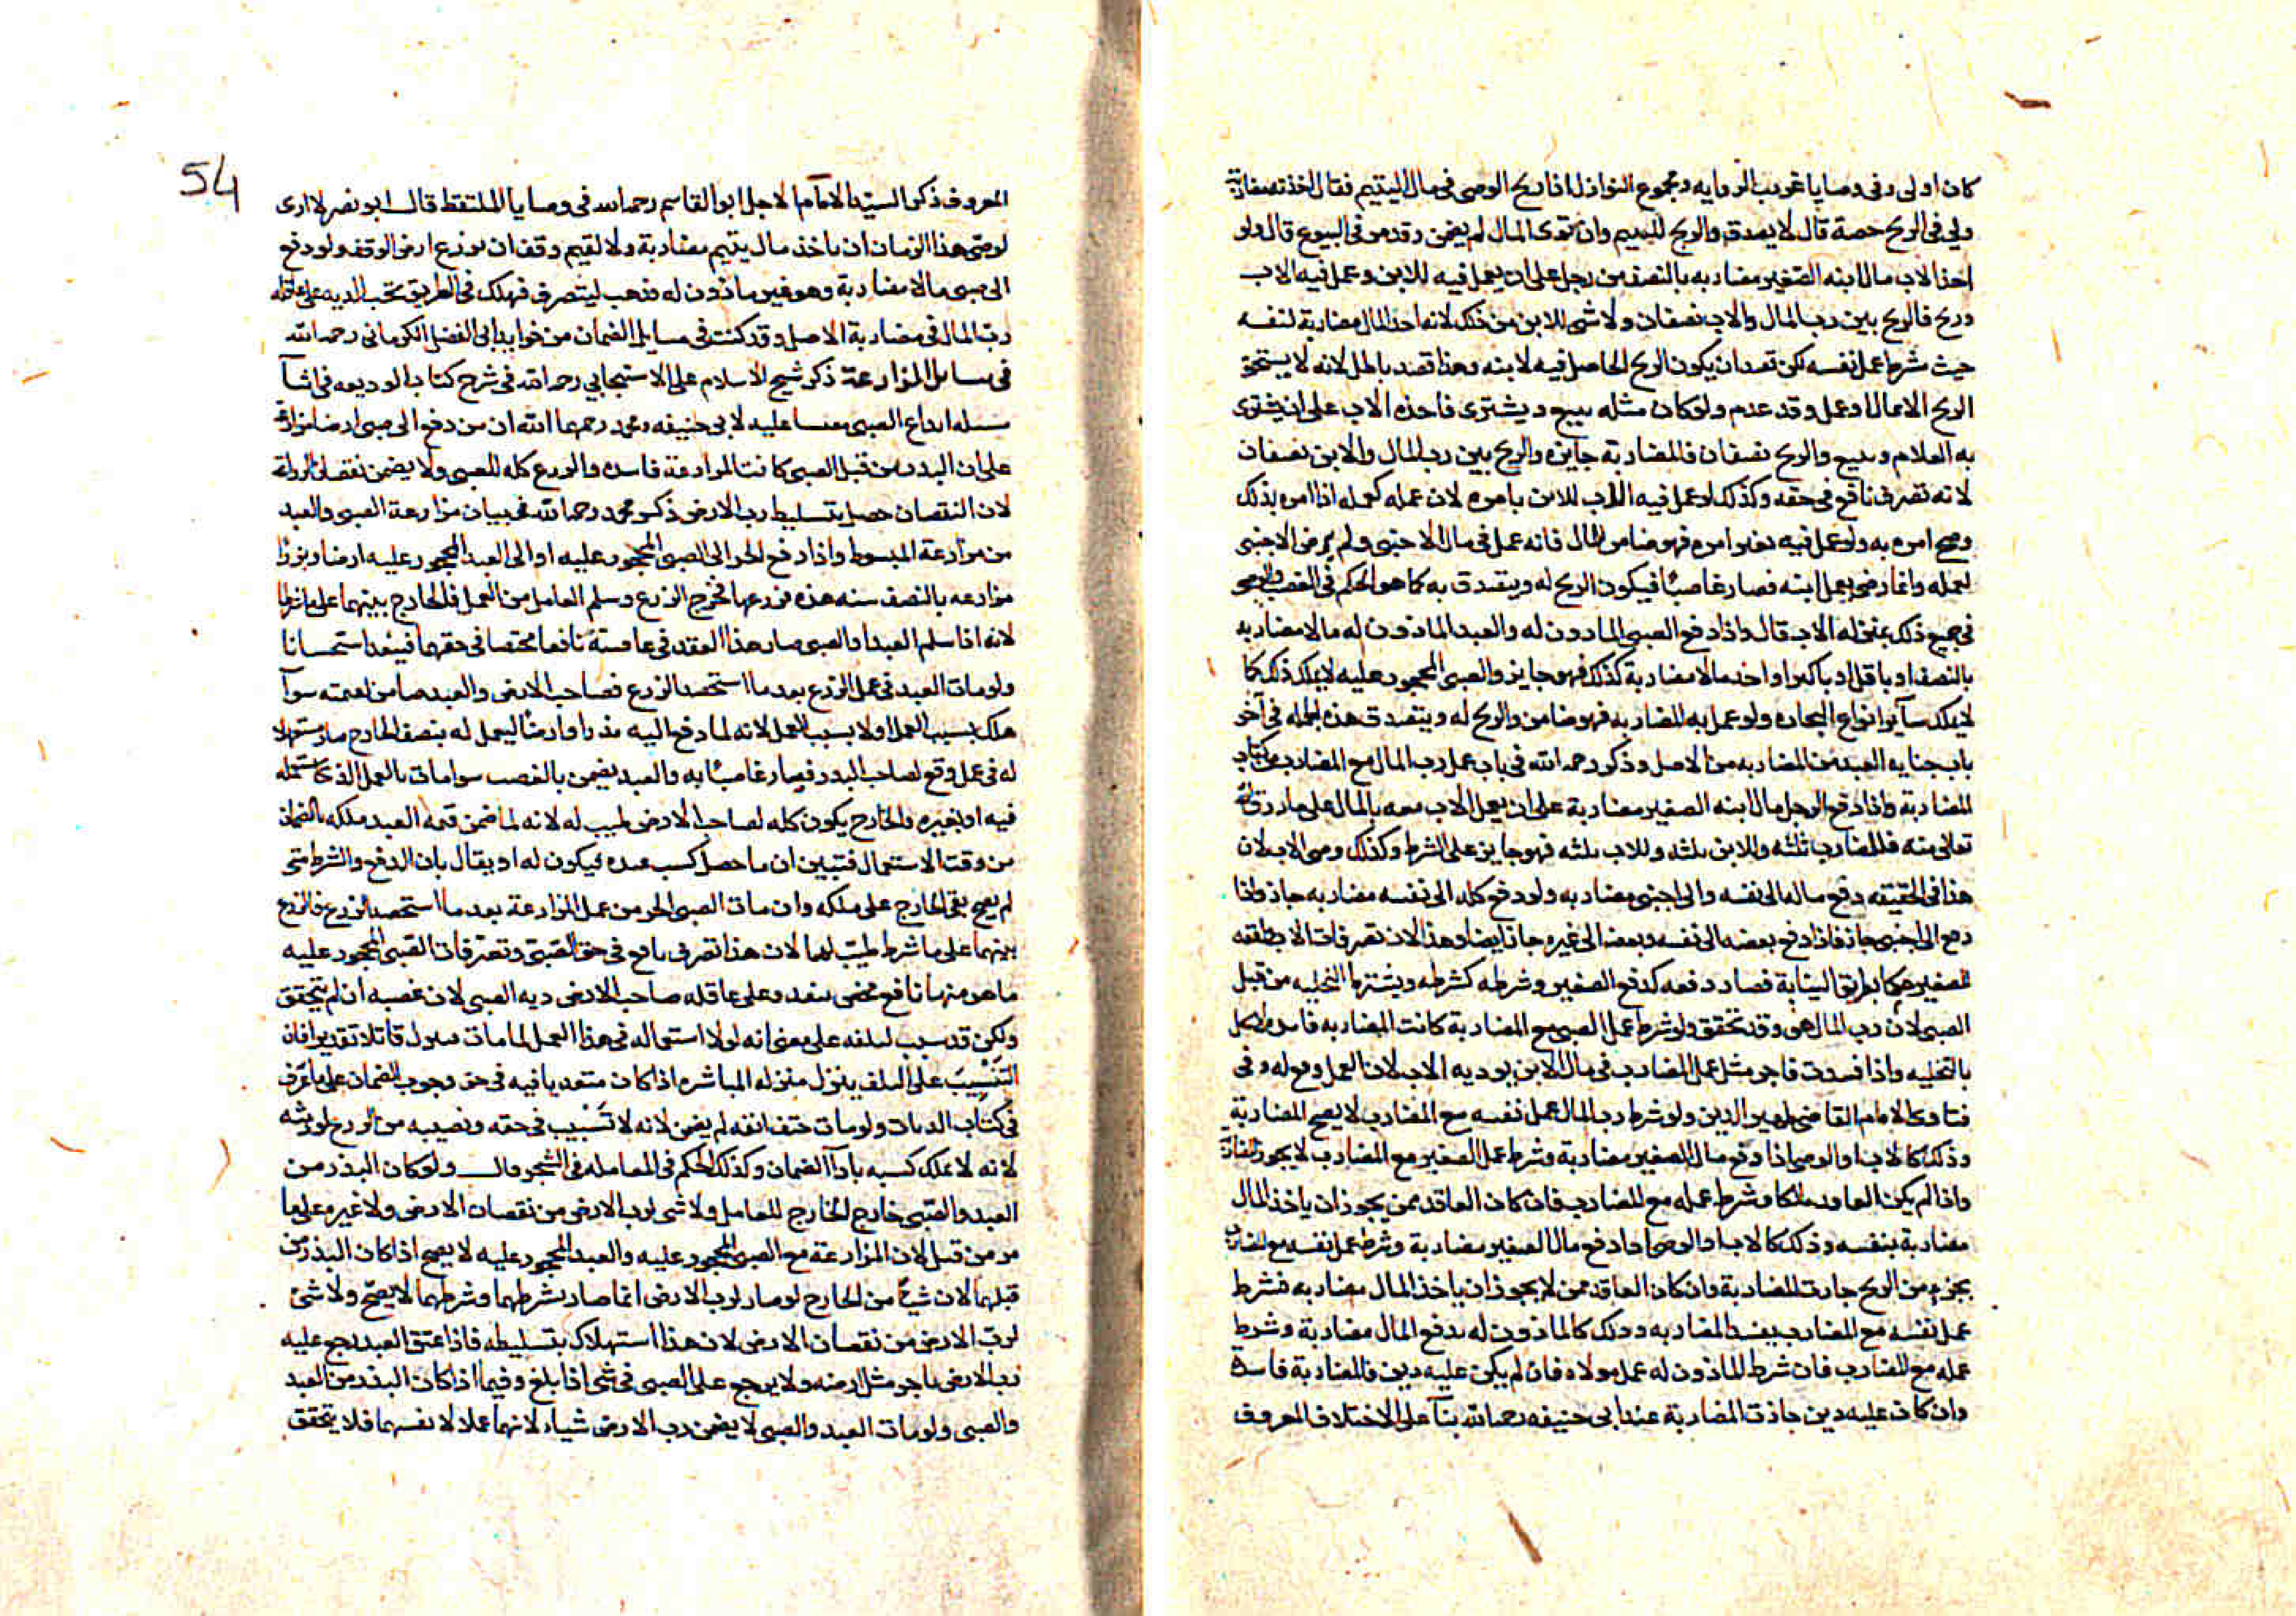 كان اولى وفى وصايا غريب الروايه ومجموع النوازل اذا ربح الوصى فى مال اليتيم فقال اخذته مضاربة
ولى فى الربح حصة قال لا يصدق والربح لليتيم وان تعدى المال لم يضمن وقد مر فى البيوع قال ولو
اخذ الاب مالا لابنه الصغير مضاربه بالنصف من رجل على ان يعمل فيه للابن وعمل فيه الاب
وربح فالربح بين رب المال والاب نصفان ولا شى للابن من ذلك لانه اخذ المال مضاربة لنفسه
حيث شرط عمل نفسه لكن قصد ان يكون الربح الحاصل فيه لابنه وهذا قصد باطل لانه لا يستحق
الربح الا بمال او عمل وقد عدم ولو كان مثله يبيع ويشترى فاخذه الاب على ان يشترى
به الغلام ويبيع والربح نصفان فالمضاربة جايزه والربح بين رب المال والابن نصفان
لانه تصرف نافع فى حقه وكذلك لو عمل فيه الاب للابن بامره لان عمله كعمله اذا امره بذلك
وصح امره به ولو عمل فيه بغير امره فهو ضامن للمال فانه عمل فى مال الاجنبى ولم يرض الاجنبى
لعمله وانما رضى بعمل ابنه فصار غاصبا فيكون الربح له ويتصدق به كما هو الحكم فى الغصب والوصى
فى جميع ذلك بمنزله الاب قال واذا دفع الصبى الماذون له والعبد الماذون له مالا مضاربه
بالنصف او باقل او باكثر او اخذ مالا مضاربة كذلك فهو جايز والصبى المحجور عليه لا يملك ذلك كما
لا يملك سآير انواع التجاره ولو عمل به للمضاربه فهو ضامن والربح له ويتصدق هذه الجمله فى آخر
باب جنايه العبد من المضاربه من الاصل وذكر رحمه الله فى باب عمل رب المال مع المضارب من كتاب
المضاربة واذا دفع الرجل مال ابنه الصغير مضاربة على ان يعمل الاب معه بالمال على ما رزق الله
تعالى منه فللمضارب ثلثه وللابن ثلثه وللاب ثلثه فهو جايز على الشرط وكذلك وصى الاب لان
هذا فى الحقيقه دفع ماله الى نفسه والى اجنبى مضاربه ولو دفع كله الى نفسه مضاربه جاز واذا
دفع الى اجنبى جاز فاذا دفع بعضه الى نفسه وبعضه الى غيره جاز ايضا وهذا لان تصرفات الاب
للصغير حكما بطريق النيابة فصار دفعه كدفع الصغير وشرطه كشرطه ويشترط التخليه من قبل
الصبى لان رب المال هو وقد تحقق ولو شرط عمل الصبى مع المضاربة كانت المضاربه فاسده
بالتخليه واذا فسدت فاجر مثل عمل المضارب فى مال الابن يوديه الاب لان العمل وقع له وفى
فتاوى الامام القاضى ظهير الدين ولو شرط رب المال عمل نفسه مع المضارب لا يصح المضاربة
وذلك كالاب او الوصى اذا دفع مال الصغير مضاربة وشرط عمل الصغير مع المضارب لا يجوز المضاربة
واذا لم يكن العاقد مالكا وشرط عمله مع المضارب فان كان العاقد ممن يجوز ان ياخذ المال
مضاربة بنفسه وذلك كالاب او الوصى اذا دفع مال الصغير مضاربة وشرط عمل نفسه مع المضارب
بجزء من الربح جازت المضاربة وان كان العاقد ممن لا يجوز ان ياخذ المال مضاربه فشرط
عمل نفسه مع المضارب يفسد المضاربه وذلك كالماذون له يدفع المال مضاربة وشرط
عمله مع المضارب فان شرط الماذون له عمل مولاه فان لم يكن عليه دين فالمضاربة فاسدة
وان كان عليه دين جازت المضاربة عند ابى حنيفه رحمه الله بنآ على الاختلاف المعروف
54
المعروف ذكر السيد الامام الاجل ابو القاسم رحمه الله فى وصايا الملتقط قال ابو نصر لا ارى
لوصى هذا الزمان ان ياخذ مال يتيم مضاربة ولا لقيم وقف ان يزرع ارض الوقف ولو دفع
الى صبى مالا مضاربة وهو غير ماذون له فذهب ليتصرف فهلك فى الطريق تجب الديه على عاقله
رب المال فى مضاربة الاصل وقد كتبت فى مسايل الضمان من فوايد ابى الفضل الكرمانى رحمه الله
فى مسايل المزارعة ذكر شيخ الاسلام على الاسبيجابى رحمه الله فى شرح كتاب الوديعه فى اثنآ
مسئله ايداع الصبى لابى حنيفه ومحمد رحمهما الله ان من دفع الى صبى ارضا مزارعة
على ان البذر من قبل الصبى كانت المزارعة فاسده والزرع كله للصبى ولا يضمن نقصان الزراعة
لان النقصان حصل بتسليط رب الارض ذكر محمد رحمه الله فى بيان مزارعة الصبى والعبد
من مزارعة المبسوط واذا دفع الحر الى الصبى المحجور عليه او الى العبد المحجور عليه ارضا وبذرا
مزارعه بالنصف سنه هذه فزرعها فخرج الزرع وسلم العامل من العمل فالخارج بينهما على ما شرطا
لانه اذا سلم العبد او الصبى صار هذا العقد فى عاقبته نافعا محضا فى حقهما فينفذ استحسانا
ولو مات العبد فى عمل الزرع بعد ما استحصد الزرع فصاحب الارض والعبد ضامن لقيمته سوآ
هلك بسبب العمل او لا بسبب العمل لانه لما دفع اليه بذرا وارضا ليعمل له بنصف الخارج صار مستعملا
له فى عمل وقع لصاحب البذر فصار غاصبا به والعبد يضمن بالغصب سوا مات بالعمل الذى استعمله
فيه او بغيره والخارج يكون كله لصاحب الارض يطيب له لانه لما ضمن قيمه العبد ملكه بالضمان
من وقت الاستعمال فتبين ان ما حصل كسب عبده فيكون له او يقال بان الدفع والشرط متى
لم يصح بقى الخارج على ملكه وان مات الصبى الحر من عمل المزارعة بعد ما استحصد الزرع فالزرع
بينهما على ما شرط يطيب لهما لان هذا تصرف نافع فى حق الصبى وتصرفات الصبى المحجور عليه
ما هو منها نافع محض ينفذ وعلى عاقله صاحب الارض ديه الصبى لان غصبه ان لم يتحقق
ولكن قد سبب لتلفه على معنى انه لولا استعماله فى هذا العمل لما مات قاتلا تقديرا فان
التسبيب على التلف ينزل منزله المباشره اذا كان متعديا فيه فى حق وجوب الضمان على ما عرف
فى كتاب الديات ولو مات حتف انفه لم يضمن لانه لا تسبيب فى حقه ونصيبه من الزرع لورثته
لانه لا يملك كسبه بادآ الضمان وكذلك الحكم فى المعامله فى الشجر قال ولو كان البذر من
العبد والصبى خارج الخارج للعامل ولا شى لرب الارض من نقصان الارض ولا غيره على ما
مر من قبل لان المزارعة مع الصبى المحجور عليه والعبد المحجور عليه لا يصح اذا كان البذر من
قبلهما لان شيئا من الخارج لو صار لرب الارض انما صار بشرطهما وشرطهما لا يصح ولا شئ
لرب الارض من نقصان الارض لان هذا استهلاك بتسليطه فاذا عتق العبد رجع عليه
رب الارض باجر مثل ارضه ولا يرجع على الصبى فى شى اذا بلغ وفيما اذا كان البذر من العبد
والصبى ولو مات العبد والصبى لا يضمن رب الارض شياء لانهما عملا لانفسهما فلا يتحقق